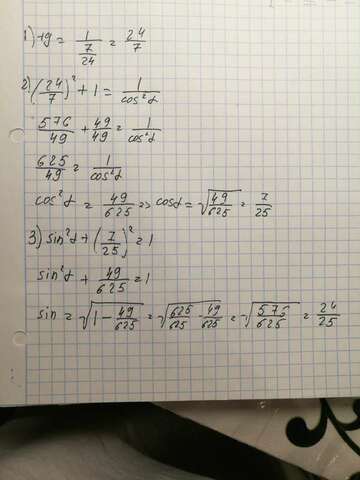 1) tg = 1 / (7/24) = 24/7
2) (24/7)² + 1 = 1/cos²α
576/49 + 49/49 = 1/cos²α
625/49 = 1/cos²α
cos²α = 49/625 => cosα = √(49/625) = 7/25
3) sin²α + (7/25)² = 1
sin²α + 49/625 = 1
sin = √(1 - 49/625) = √(625/625 - 49/625) = √(576/625) = 24/25